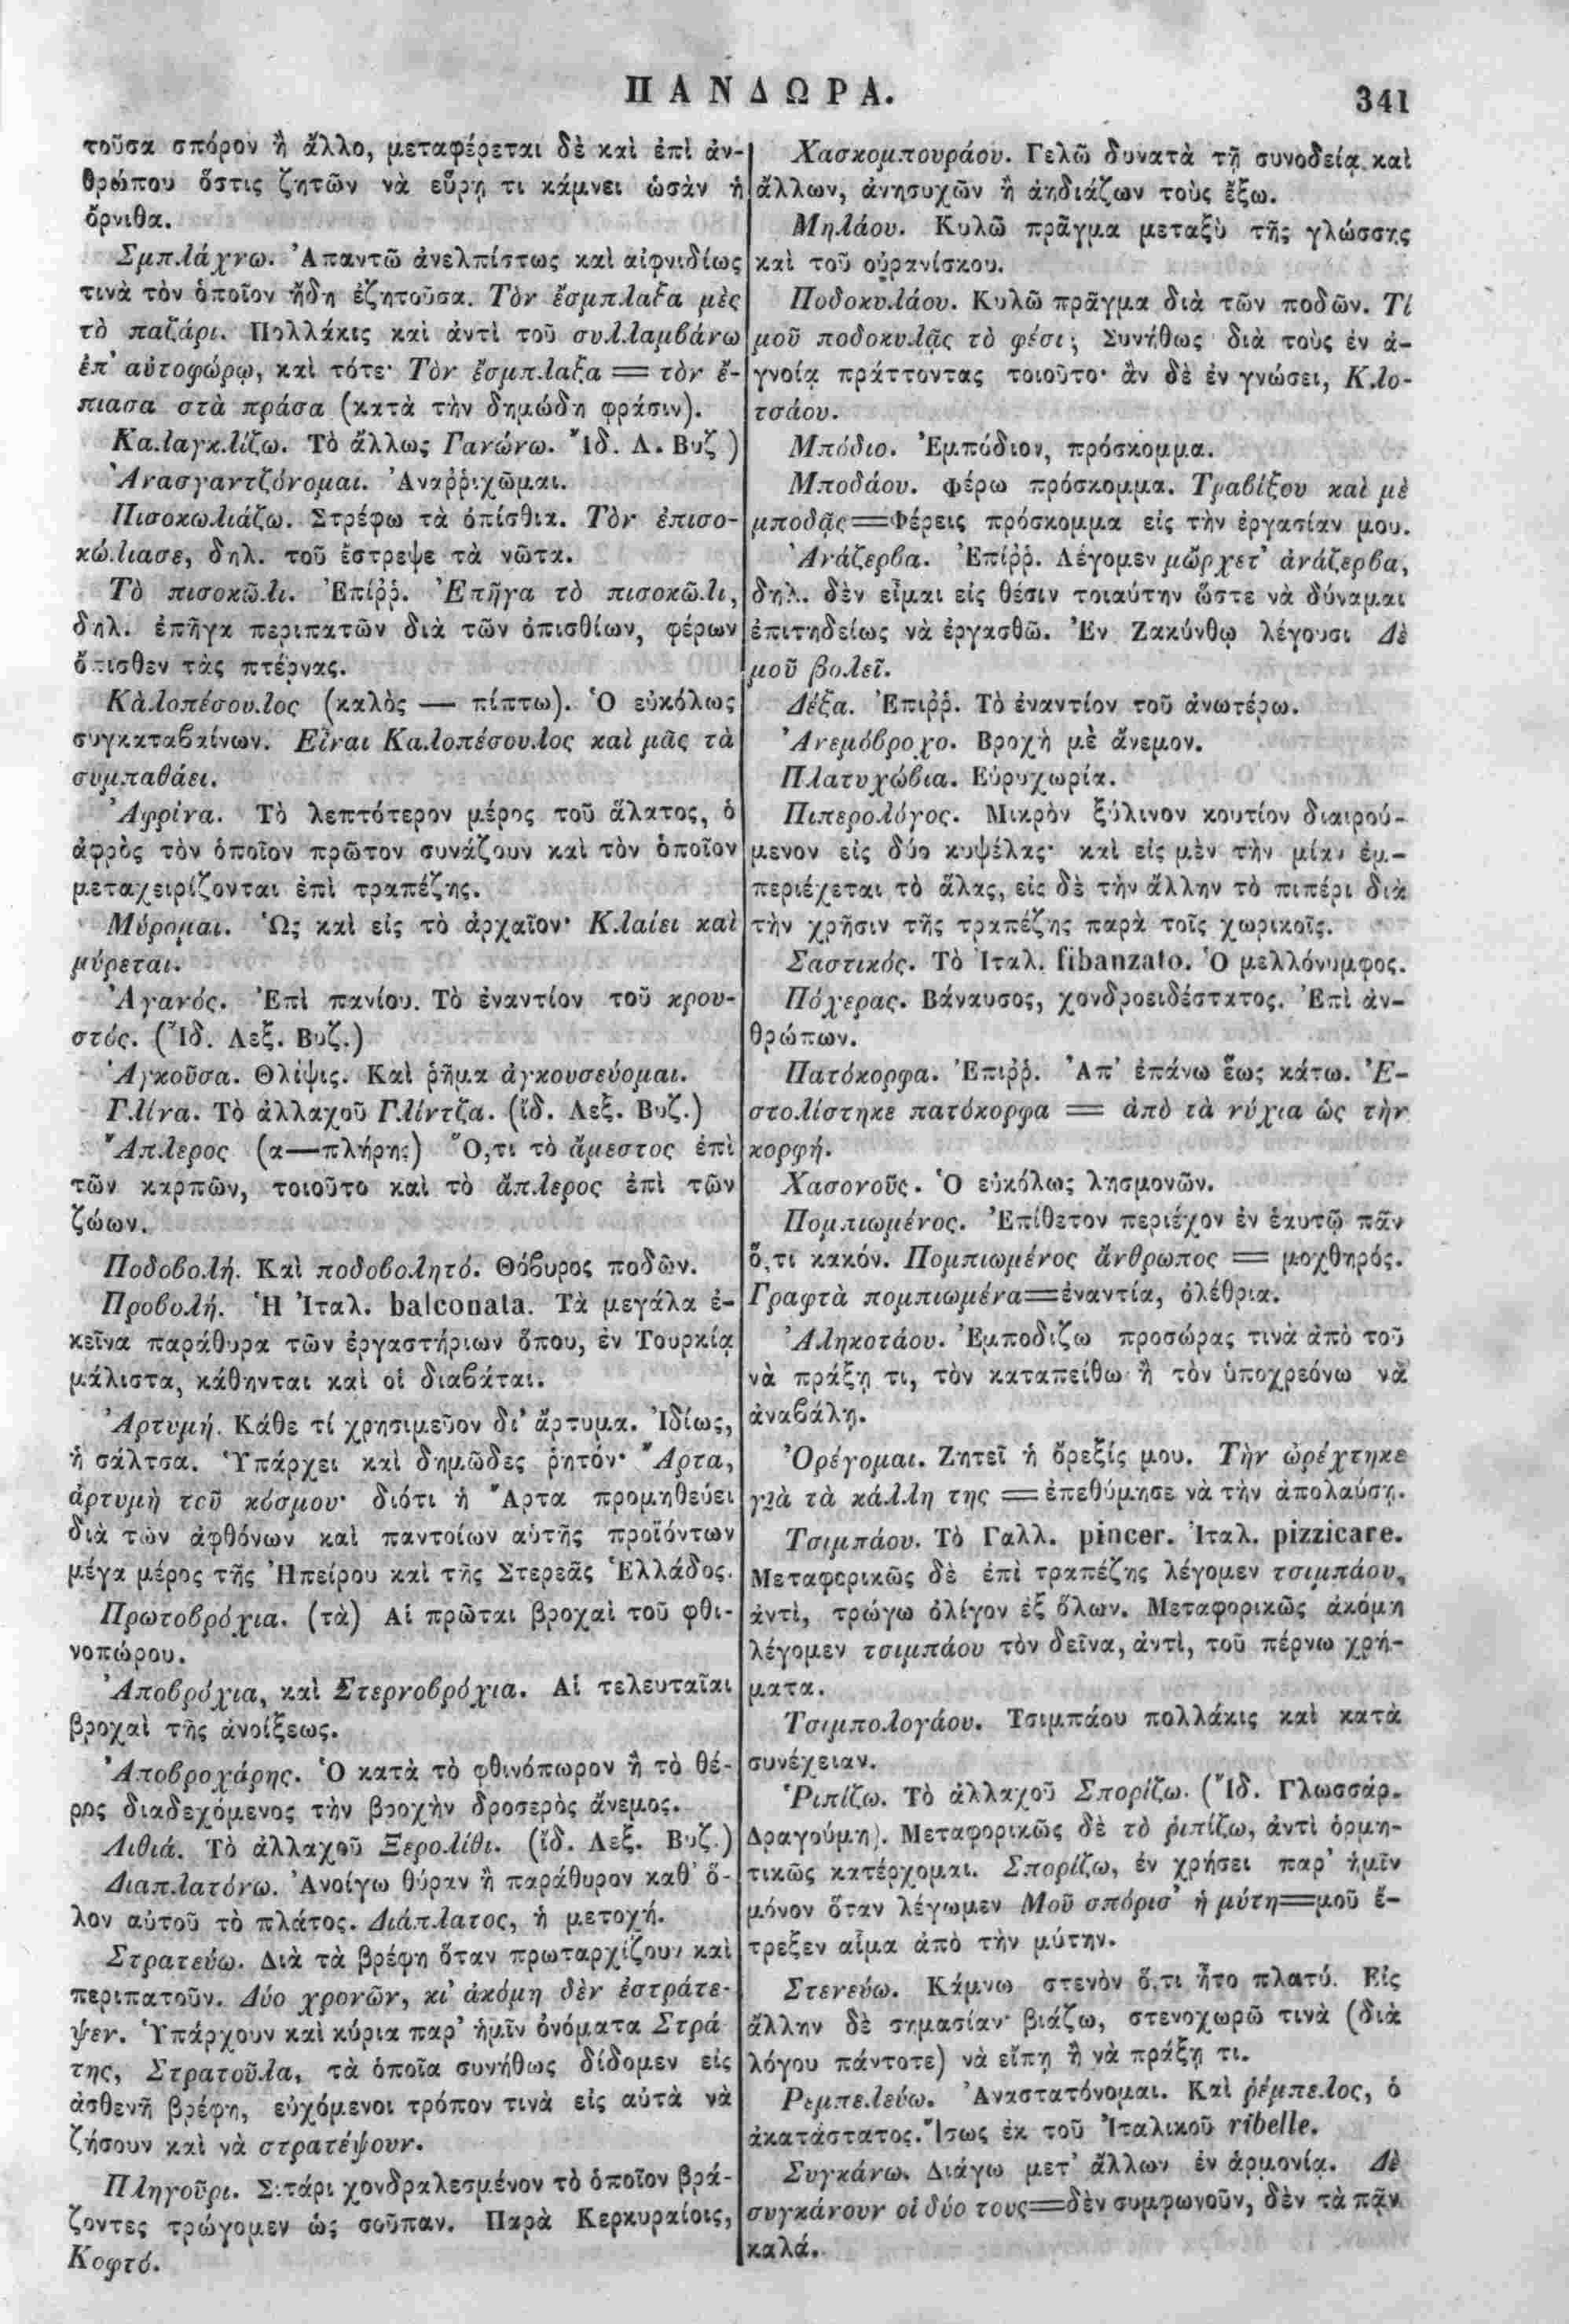 ΠΑΝΔΩΡΑ.
341
τοῦσα σπόρον ἢ ἄλλο, μεταφέρεται δὲ καὶ ἐπὶ ἀν-
θρώπου ὅστις ζητῶν νὰ εὕρῃ τι κάμνει ὡσὰν ἡ
ὄρνιθα.
Σμπλάχνω. Ἀπαντῶ ἀνελπίστως καὶ αἰφνιδίως
τινὰ τὸν ὁποῖον ἤδη ἐζητοῦσα. Τὸν ἔσμπλαξα μὲς
τὸ παζάρι. Πολλάκις καὶ ἀντὶ τοῦ συλλαμβάνω
ἐπ' αὐτοφώρῳ, καὶ τότε· Τὸν ἔσμπλαξα = τὸν ἔ-
πιασα στὰ πράσα (κατὰ τὴν δημώδη φράσιν).
Καλαγκλίζω. Τὸ ἄλλως Γανώνω. Ἴδ. Λ. Βυζ )
Ἀνασγαντζόνομαι. Ἀναῤῥιχῶμαι.
Πισοκωλιάζω. Στρέφω τὰ ὀπίσθια. Τὸν ἐπισο-
κώλιασε, δηλ. τοῦ ἔστρεψε τὰ νῶτα.
Τὸ πισοκῶλι. Ἐπίῤῥ. Ἐπῆγα τὸ πισοκῶλι,
δηλ. ἐπῆγα περιπατῶν διὰ τῶν ὀπισθίων, φέρων
ὄπισθεν τὰς πτέρνας.
Κὰλοπέσουλος (καλὸς — πίπτω). Ὁ εὐκόλως
συγκαταβαίνων. Εἶναι Καλοπέσουλος καὶ μᾶς τὰ
συμπαθάει.
Ἀφρίνα. Τὸ λεπτότερον μέρος τοῦ ἅλατος, ὁ
ἀφρὸς τὸν ὁποῖον πρῶτον συνάζουν καὶ τὸν ὁποῖον
μεταχειρίζονται ἐπὶ τραπέζης.
Μύρομαι. Ὡς καὶ εἰς τὸ ἀρχαῖον· Κλαίει καὶ
μύρεται.
Ἀγανός. Ἐπὶ πανίου. Τὸ ἐναντίον τοῦ κρου-
στός. (Ἴδ. Λεξ. Βυζ.)
Ἀγκοῦσα. Θλίψις. Καὶ ῥῆμα ἀγκουσεύομαι.
Γλίνα. Τὸ ἀλλαχοῦ Γλίντζα. (ἴδ. Λεξ. Βυζ.)
Ἄπλερος (α—πλήρης) Ὅ,τι τὸ ἄμεστος ἐπὶ
τῶν καρπῶν, τοιοῦτο καὶ τὸ ἄπλερος ἐπὶ τῶν
ζώων.
Ποδοβολή. Καὶ ποδοβολητό. Θόβυρος ποδῶν.
Προβολή. Ἡ Ἰταλ. balconata. Τὰ μεγάλα ἐ-
κεῖνα παράθυρα τῶν ἐργαστήριων ὅπου, ἐν Τουρκίᾳ
μάλιστα, κάθηνται καὶ οἱ διαβάται.
Ἀρτυμή. Κάθε τί χρησιμεῦον δι' ἄρτυμα. Ἰδίως,
ἡ σάλτσα. Ὑπάρχει καὶ δημῶδες ῥητόν· Ἄρτα,
ἀρτυμὴ τοῦ κόσμου· διότι ἡ Ἄρτα προμηθεύει
διὰ τῶν ἀφθόνων καὶ παντοίων αὑτῆς προϊόντων
μέγα μέρος τῆς Ἠπείρου καὶ τῆς Στερεᾶς Ἑλλάδος.
Πρωτοβρόχια. (τὰ) Αἱ πρῶται βροχαὶ τοῦ φθι-
νοπώρου.
Ἀποβρόχια, καὶ Στερνοβρόχια. Αἱ τελευταῖαι
βροχαὶ τῆς ἀνοίξεως.
Ἀποβροχάρης. Ὁ κατὰ τὸ φθινόπωρον ἢ τὸ θέ-
ρος διαδεχόμενος τὴν βροχὴν δροσερὸς ἄνεμος.
Λιθιά. Τὸ ἀλλαχοῦ Ξερολίθι. (ἴδ. Λεξ. Βυζ.)
Διαπλατόνω. Ἀνοίγω θύραν ἢ παράθυρον καθ' ὅ-
λον αὐτοῦ τὸ πλάτος. Διάπλατος, ἡ μετοχή.
Στρατεύω. Διὰ τὰ βρέφη ὅταν πρωταρχίζουν καὶ
περιπατοῦν. Δύο χρονῶν, κι' ἀκόμη δὲν ἐστράτε-
ψεν. Ὑπάρχουν καὶ κύρια παρ' ἡμῖν ὀνόματα Στρά
της, Στρατοῦλα, τὰ ὁποῖα συνήθως δίδομεν εἰς
ἀσθενῆ βρέφη, εὐχόμενοι τρόπον τινὰ εἰς αὐτὰ νὰ
ζήσουν καὶ νὰ στρατέψουν.
Πληγοῦρι. Σιτάρι χονδραλεσμένον τὸ ὁποῖον βρά-
ζοντες τρώγομεν ὡς σοῦπαν. Παρὰ Κερκυραίοις,
Κοφτό.
Χασκομπουράου. Γελῶ δυνατὰ τῇ συνοδείᾳ καὶ
ἄλλων, ἀνησυχῶν ἢ ἀηδιάζων τοὺς ἔξω.
Μηλάου. Κυλῶ πρᾶγμα μεταξὺ τῆς γλώσσης
καὶ τοῦ οὐρανίσκου.
Ποδοκυλάου. Κυλῶ πρᾶγμα διὰ τῶν ποδῶν. Τί
μοῦ ποδοκυλᾷς τὸ φέσι; Συνήθως διὰ τοὺς ἐν ἀ-
γνοίᾳ πράττοντας τοιοῦτο· ἂν δὲ ἐν γνώσει, Κλο-
τσάου.
Μπόδιο. Ἐμπόδιον, πρόσκομμα.
Μποδάου. Φέρω πρόσκομμα. Τραβίξου καὶ μὲ
μποδᾷς=Φέρεις πρόσκομμα εἰς τὴν ἐργασίαν μου.
Ἀνάζερβα. Ἐπίῤῥ. Λέγομεν μὤρχετ' ἀνάζερβα,
δηλ. δὲν εἶμαι εἰς θέσιν τοιαύτην ὥστε νὰ δύναμαι
ἐπιτηδείως νὰ ἐργασθῶ. Ἐν Ζακύνθῳ λέγουσι Δὲ
μοῦ βολεῖ.
Δέξα. Ἐπιῤῥ. Τὸ ἐναντίον τοῦ ἀνωτέρω.
Ἀνεμόβροχο. Βροχὴ μὲ ἄνεμον.
Πλατυχώβια. Εὐρυχωρία.
Πιπερολόγος. Μικρὸν ξύλινον κουτίον διαιρού-
μενον εἰς δύο κυψέλας· καὶ εἰς μὲν τὴν μίαν ἐμ-
περιέχεται τὸ ἅλας, εἰς δὲ τὴν ἄλλην τὸ πιπέρι διὰ
τὴν χρῆσιν τῆς τραπέζης παρὰ τοῖς χωρικοῖς.
Σαστικός. Τὸ Ἰταλ. fibanzato. Ὁ μελλόνυμφος.
Πόχερας. Βάναυσος, χονδροειδέστατος. Ἐπὶ ἀν-
θρώπων.
Πατόκορφα. Ἐπιῤῥ. Ἀπ' ἐπάνω ἕως κάτω. Ἐ-
στολίστηκε πατόκορφα = ἀπὸ τὰ νύχια ὡς τὴν
κορφή.
Χασονοῦς. Ὁ εὐκόλως λησμονῶν.
Πομπιωμένος. Ἐπίθετον περιέχον ἐν ἑαυτῷ πᾶν
ὅ,τι κακόν. Πομπιωμένος ἄνθρωπος = μοχθηρός.
Γραφτὰ πομπιωμένα=ἐναντία, ὀλέθρια.
Ἀληκοτάου. Ἐμποδιζω προσώρας τινὰ ἀπὸ τοῦ
νὰ πράξῃ τι, τὸν καταπείθω ἢ τὸν ὑποχρεόνω νὰ
ἀναβάλῃ.
Ὀρέγομαι. Ζητεῖ ἡ ὄρεξίς μου. Τὴν ὠρέχτηκε
γιὰ τὰ κάλλη της = ἐπεθύμησε νὰ τὴν ἀπολαύσῃ.
Τσιμπάου. Τὸ Γαλλ. pincer. Ἰταλ. pizzicare.
Μεταφορικῶς δὲ ἐπὶ τραπέζης λέγομεν τσιμπάου,
ἀντὶ, τρώγω ὀλίγον ἐξ ὅλων. Μεταφορικῶς ἀκόμη
λέγομεν τσιμπάου τὸν δεῖνα, ἀντὶ, τοῦ πέρνω χρή-
ματα.
Τσιμπολογάου. Τσιμπάου πολλάκις καὶ κατὰ
συνέχειαν.
Ῥιπίζω. Τὸ ἀλλαχοῦ Σπορίζω. (Ἴδ. Γλωσσάρ.
Δραγούμη). Μεταφορικῶς δὲ τὸ ῥιπίζω, ἀντὶ ὁρμη-
τικῶς κατέρχομαι. Σπορίζω, ἐν χρήσει παρ' ἡμῖν
μόνον ὅταν λέγωμεν Μοῦ σπόρισ' ἡ μύτη=μοῦ ἔ-
τρεξεν αἷμα ἀπὸ τὴν μύτην.
Στενεύω. Κάμνω στενὸν ὅ,τι ἦτο πλατύ. Εἰς
ἄλλην δὲ σημασίαν· βιάζω, στενοχωρῶ τινὰ (διὰ
λόγου πάντοτε) νὰ εἴπῃ ἢ νὰ πράξῃ τι.
Ρεμπελεύω. Ἀναστατόνομαι. Καὶ ῥέμπελος, ὁ
ἀκατάστατος. Ἴσως ἐκ τοῦ Ἰταλικοῦ ribelle.
Συγκάνω. Διάγω μετ' ἄλλων ἐν ἁρμονίᾳ. Δὲ
συγκάνουν οἱ δύο τους=δὲν συμφωνοῦν, δὲν τὰ πᾶν
καλά.